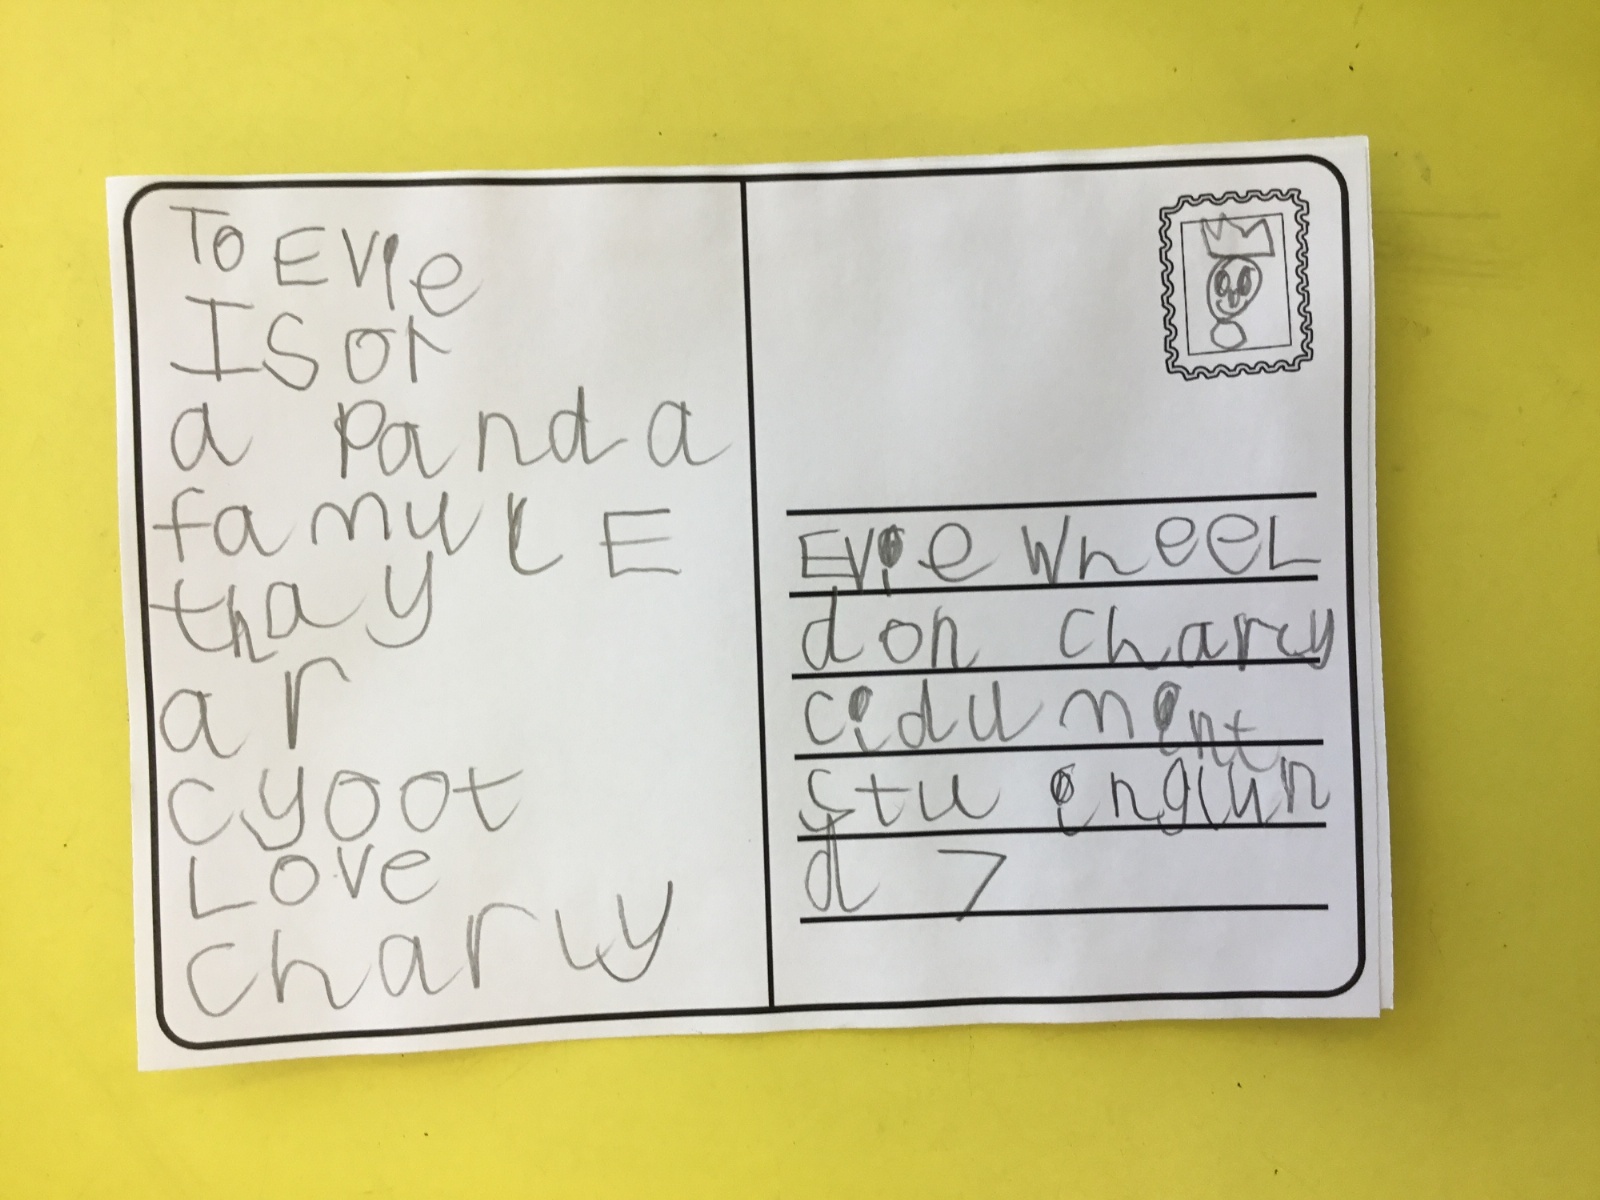 To EVie
I Sor
a Panda
famulE
thay
ar
cyoot
Love
charly
EVie wheeL
don charly
cidumint
stu englun
d 7